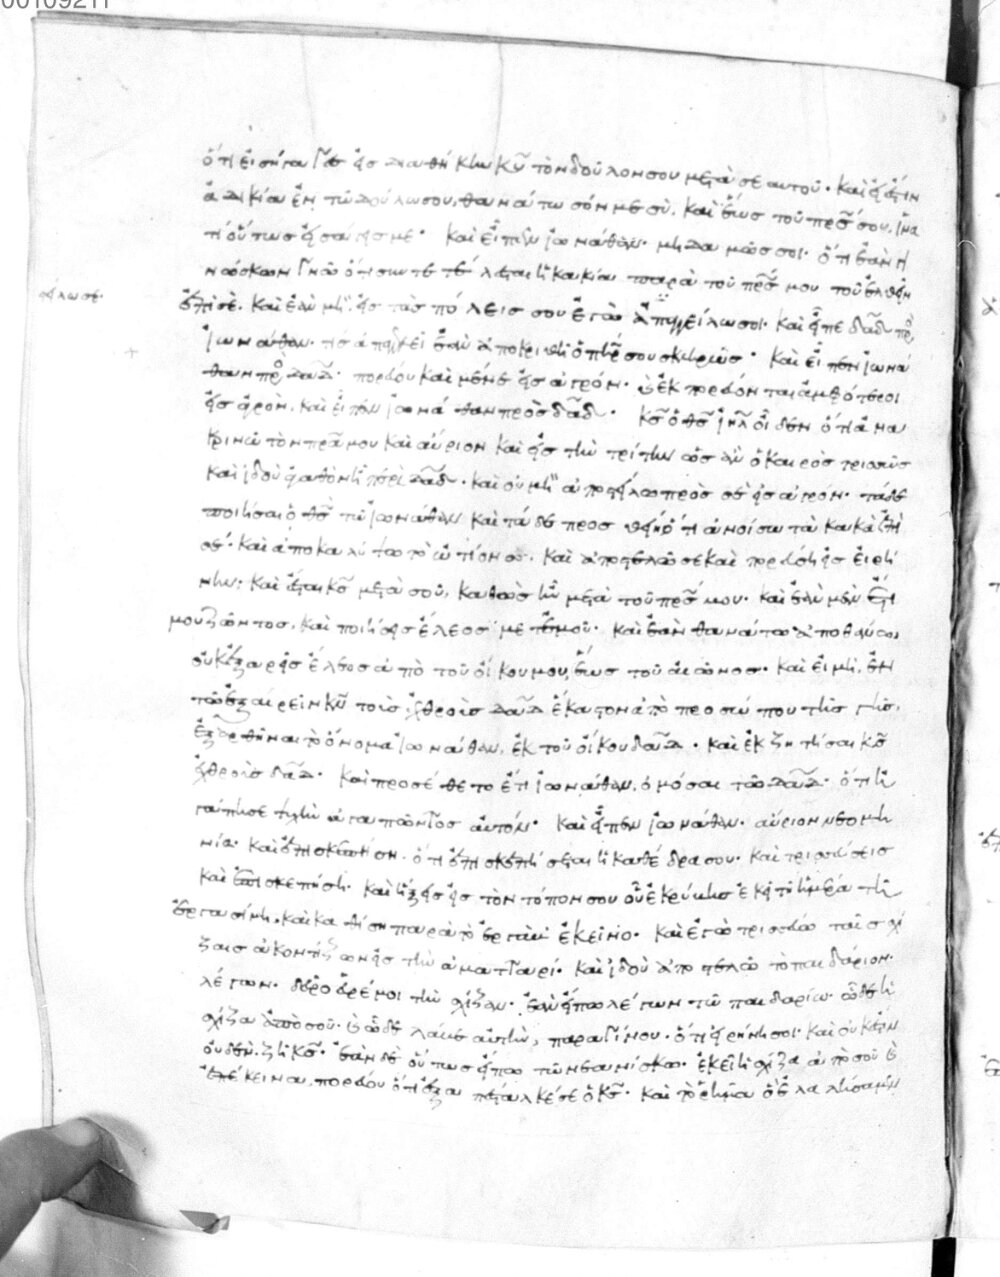 00109211
ὅτι εἰσήγαγες εἰς διαθήκην κυ τὸν δοῦλον σου μετὰ σεαυτοῦ· καὶ εἰ ἔστιν
ἀδικία ἐν τῶ δούλω σου, θανάτωσόν με σὺ, καὶ ἕως τοῦ πρσ σου, ἵνα
τί οὕτως εἰσάγεις με· καὶ εἶπεν ἰωνάθαν· μηδαμῶς σοι· ὅτι ἐὰν γι
νώσκων γνῶ ὅτι συντετέλεσται ἡ κακία παρὰ τοῦ πρσ μου τοῦ ἐλθεῖν
ἐπὶ σέ· καὶ ἐὰν μὴ εἰς τὰς πόλεις σου ἐγὼ ἀπαγγελῶ σοι· καὶ εἶπε δαδ πρὸς
ἰωνάθαν· τίς ἀπαγγελεῖ ἐὰν ἀποκριθῆ ὁ πηρ σου σκληρῶς· καὶ εἶπεν ἰωνά
θαν πρὸς δαδ· πορεύου καὶ μένε εἰς ἀγρόν· καὶ ἐκπορεύονται ἀμφότεροι
εἰς ἀγρὸν, καὶ εἶπεν ἰωνάθαν πρὸς δαδ· κς ὁ θς ἰηλ οἶδεν ὅτι ἀνα
κρινῶ τὸν πρα μου καὶ αὔριον καὶ εἰς τὴν τρίτην ὡς ἂν ὁ καιρὸς τρισσῶς
καὶ ἰδοὺ ἀγαθὸν ἦ περὶ δαδ· καὶ οὐ μὴ ἀποστείλω πρὸς σὲ εἰς ἀγρόν· τάδε
ποιήσαι ὁ θς τῶ ἰωνάθαν καὶ τάδε προσθείη ὅτι ἀνοίσω τὰ κακὰ ἐπὶ
σέ· καὶ ἀποκαλύψω τὸ ὠτίον σου· καὶ ἀποστελῶ σε καὶ πορεύση εἰς εἰρή
νην· καὶ ἔσται κς μετὰ σοῦ, καθὼς ἦν μετὰ τοῦ πρσ μου· καὶ ἐὰν μὲν ἔτι
μου ζῶντος, καὶ ποιήσεις ἔλεος μετ' ἐμοῦ· καὶ ἐὰν θανάτω ἀποθάνω,
οὐκ ἐξαρεῖς ἔλεος ἀπὸ τοῦ οἴκου μου, ἕως τοῦ αἰῶνος· καὶ εἰ μὴ, ἐν
τῶ ἐξαίρειν κν τοὺς ἐχθροὺς δαδ ἕκαστον ἀπὸ προσώπου τῆς γῆς,
ἐξαρθῆναι τὸ ὄνομα ἰωνάθαν, ἐκ τοῦ οἴκου δαδ· καὶ ἐκζητήσαι κς
ἐχθροὺς δαδ· καὶ προσέθετο ἔτι ἰωνάθαν, ὀμόσαι τῶ δαδ· ὅτι ἠ
γάπησε ψυχὴν ἀγαπῶντος αὐτόν· καὶ εἶπεν ἰωνάθαν· αὔριον νεομη
νία· καὶ ἐπισκεπήση· ὅτι ἐπισκεπήσεται ἡ καθέδρα σου· καὶ τρισσεύσεις
καὶ ἐπισκεπήση· καὶ ἥξεις εἰς τὸν τόπον σου οὗ ἐκρύβης ἐκεῖ τῆ ἡμέρα τῆ
ἐργασίμη, καὶ καθήση παρὰ τὸ ἐργὰβ ἐκεῖνο· καὶ ἐγὼ τρισσεύσω ταῖς σχί
ζαις ἀκοντίζων εἰς τὴν ἀματταρί· καὶ ἰδοὺ ἀποστελῶ τὸ παιδάριον·
λέγων· δεῦρο εὑρέ μοι τὴν σχίζαν· ἐὰν εἴπω λέγων τῶ παιδαρίω· ὧδε ἡ
σχίζα ἀπὸ σοῦ καὶ ὧδε λάβε αὐτὴν, παραγίνου· ὅτι εἰρήνη σοι καὶ οὐκ ἔστιν
οὐδὲν· ζῆ κς· ἐὰν δὲ οὕτως εἴπω τῶ νεανίσκω· ἐκεῖ ἡ σχίζα ἀπὸ σοῦ καὶ
ἐπέκεινα, πορεύου ὅτι ἐξαπέσταλκέ σε ὁ κς· καὶ τὸ ῥῆμα ὃ ἐλαλήσαμεν